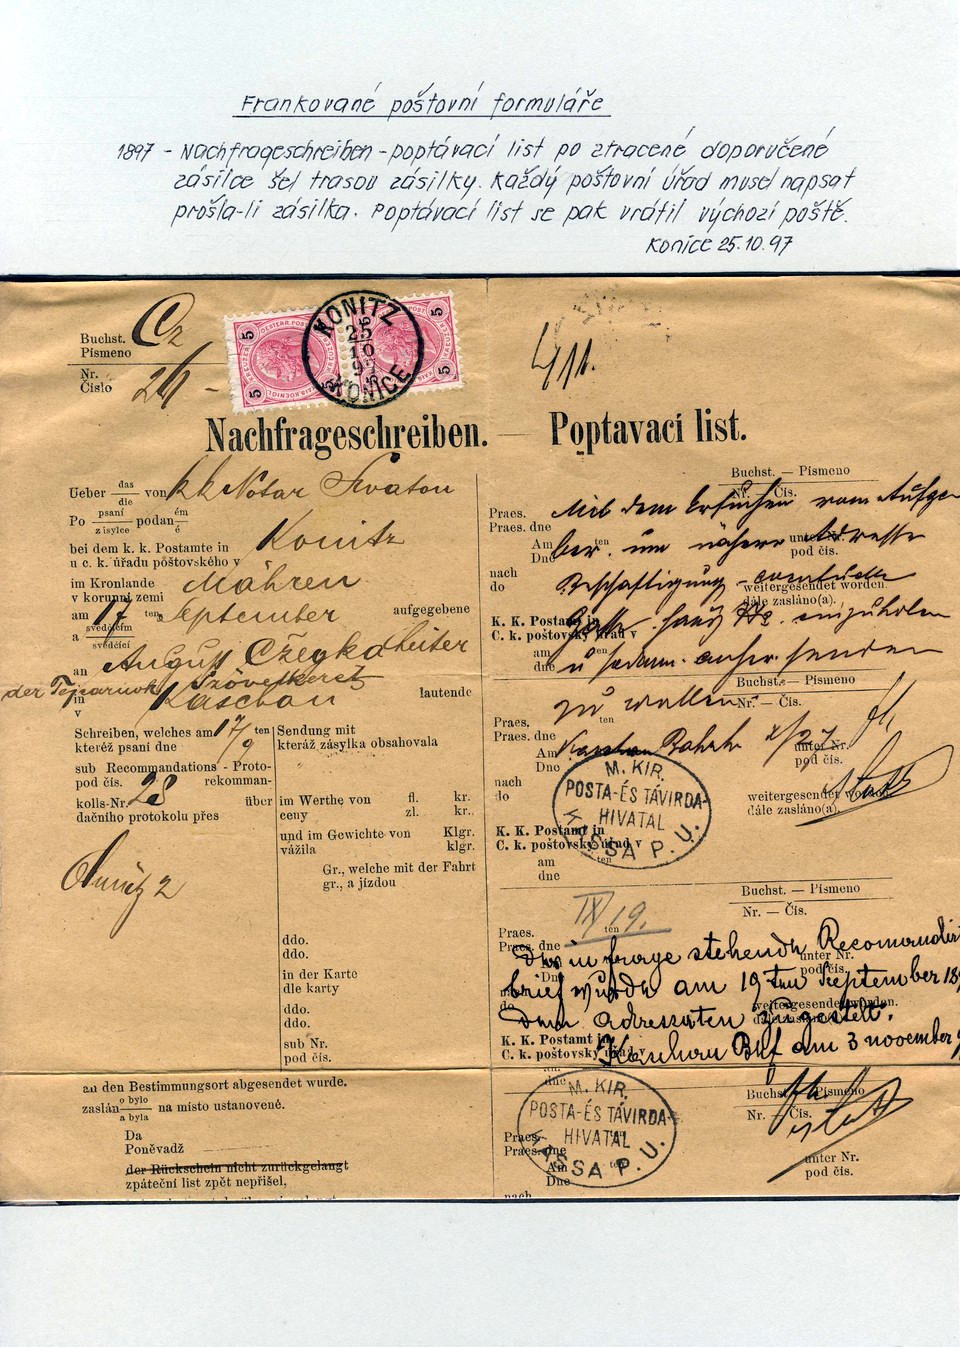 Frankované poštovní formuláře
1897 - Nachfrageschreiben - poptávací list po ztracené doporučené
zásilce šel trasou zásilky. Každý poštovní úřad musel napsat
prošla-li zásilka. Poptávací list se pak vrátil výchozí poště.
Konice 25.10.97
Buchst.
Písmeno
Cz
Nr.
Číslo
5
5
5
5
KONITZ
25
10
97
KONICE
411.
Nachfrageschreiben. — Poptavací list.
Ueber das/die von kk Notar Svaton
Po psaní/zásylce podaném/é
bei dem k. k. Postamte in Konitz
u c. k. úřadu pôštovského v
im Kronlande Mähren
v korunní zemi
am 17ten September aufgegebene
a svědčícím/svědčící
an August
in Kaschau lautende
v
Schreiben, welches am 17/9 ten
kteréž psaní dne
sub Recommandations-Proto-
pod čís. rekomman-
kolls-Nr. 28 über
dačního protokolu přes
Olmütz 2
Sendung mit
kteráž zásylka obsahovala
im Werthe von fl. kr.
ceny zl. kr.
und im Gewichte von Klgr.
vážila klgr.
Gr., welche mit der Fahrt
gr., a jízdou
ddo.
ddo.
in der Karte
dle karty
ddo.
ddo.
sub Nr.
pod čís.
an den Bestimmungsort abgesendet wurde.
zaslán o bylo/a byla na místo ustanovené.
Da
Poněvadž
der Rückschein nicht zurückgelangt
zpáteční list zpět nepřišel,
Buchst. — Písmeno
Nr. — Čís.
Praes.
Praes. dne
Mit dem Ersuchen vom Aufge
Am ten unter Nr.
Dne pod čís.
ber um nähere Adresse
nach weitergesendet worden.
do dále zasláno(a).
K. K. Postamt in
C. k. poštovský úřad v
einzuholen
am ten
dne
u sodann anher senden
Buchst. — Písmeno
Nr. — Čís.
zu wollen
Praes. ten
Praes. dne
Am unter Nr.
Dne pod čís.
Kaschau Bahnh
nach weitergesendet worden.
do dále zasláno(a).
M. KIR.
POSTA-ÉS TÁVIRDA-
HIVATAL
KASSA P. U.
K. K. Postamt in
C. k. poštovský úřad v
am ten
dne
Buchst. — Písmeno
Nr. — Čís.
IX 19.
Praes. ten
Praes. dne
Das in frage stehende Recomandir
unter Nr.
pod čís.
brief wurde am 19ten September 189
weitergesendet worden.
dem adressaten zugestelt.
K. K. Postamt in
C. k. poštovský úřad v
Kaschau Bhf am 3 november 9
dne
M. KIR.
POSTA-ÉS TÁVIRDA-
HIVATAL
KASSA P. U.
Buchst. — Písmeno
Nr. — Čís.
Praes.
Praes. dne
Am ten unter Nr.
Dne pod čís.
nach